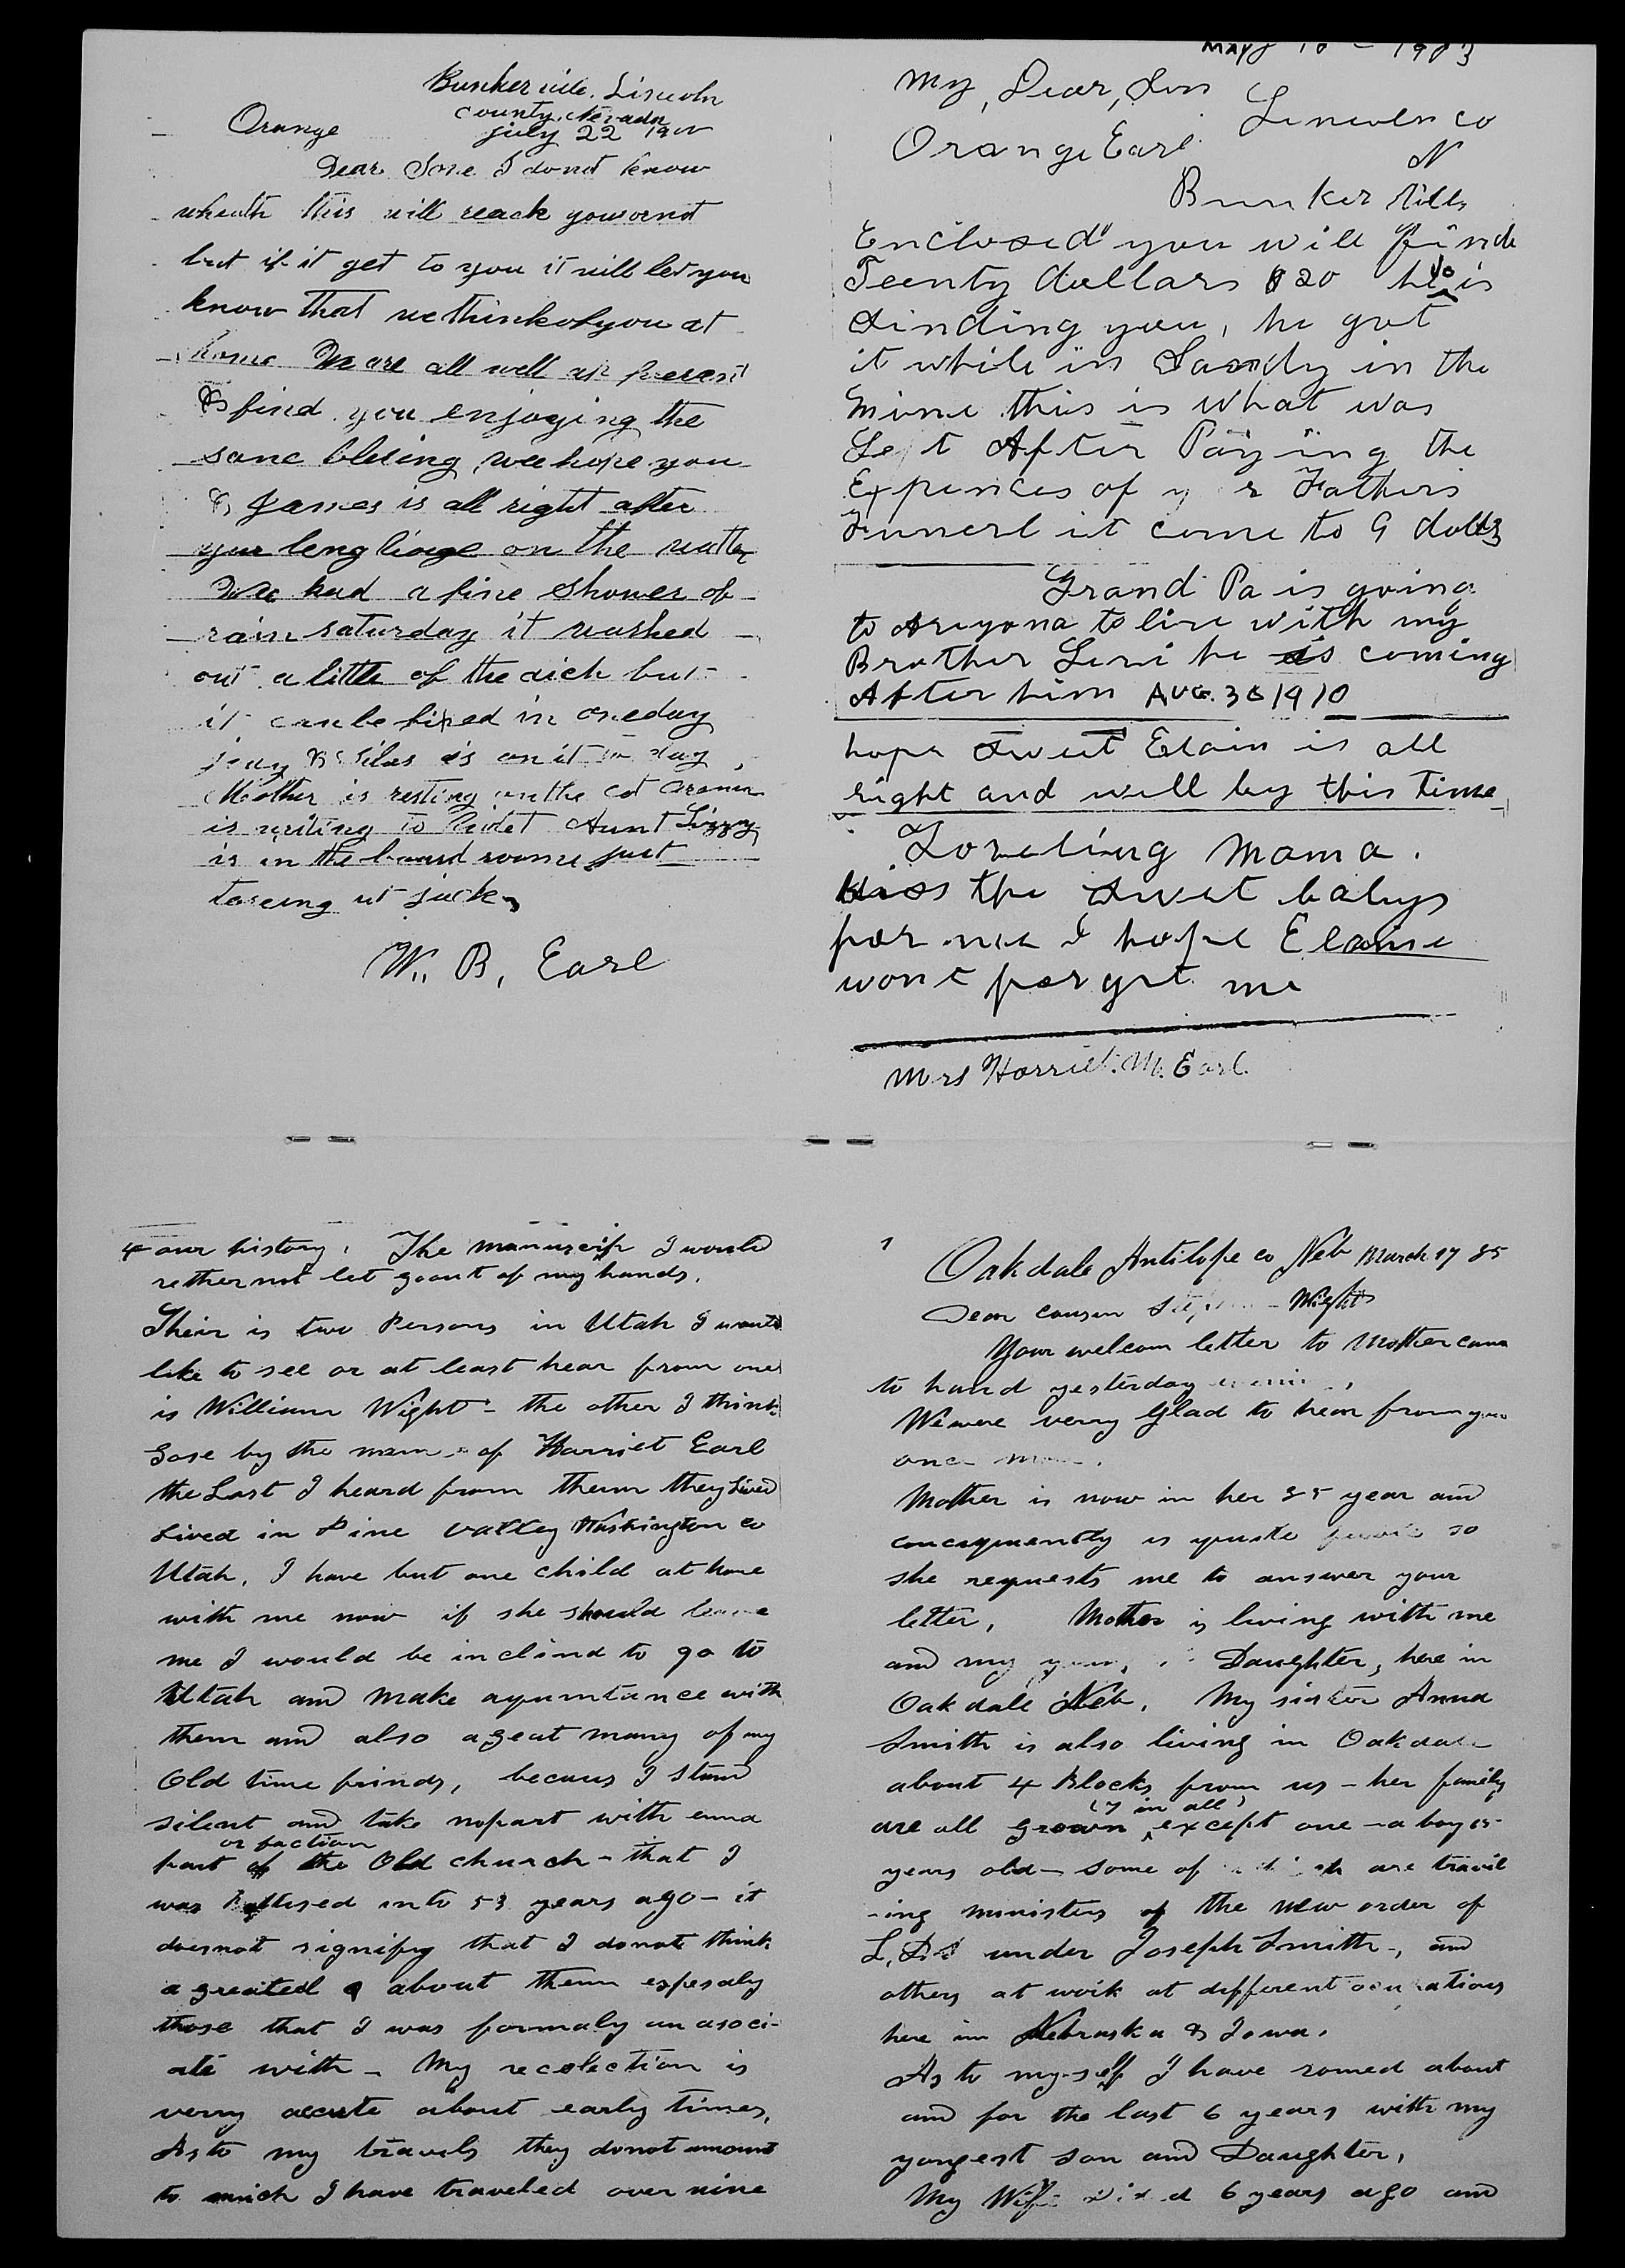 Bunker vile. Lincoln
county, Nevada
Orange july 22 1900
Dear Sone I donot know
wheath this will reach you or not
but if it get to you it will let you
know that we think of you at
home We are all well at present
& find you enjoying the
same blesing, wee hope you
& James is all right after
your leng on the watter
Wee had a fine shower of
rain saturday it washed
out a little of the dich but
it can be fixed in one day
& Silas is on it to day
Mother is resting on the cot
is writing to Aunt Lizzy
is in the board roome just
W. B. Earl
May 10 - 1903
My, Dear, Son
Lincoln co
Orange Earl
N
Bunker Ville
Enclosed you will finde
Teenty dollars $20 is
sinding you, he got
it while in Sandy in the
Mine this is what was
Left After Paying the
Expences of your Fathers
Funerl it come to 9 dolls
Grand Pa is going
to Areyona to live with my
Brother Levi he is coming
After him AUG. 30 1910
hope sweet Elain is all
right and well by this time
Loveling Mama.
Kiss the sweet babys
for me I hope Elaine
wont forget me
Mrs Harriet. M. Earl.
4 our history. The manuscrip I would
rether not let go out of my hands.
Their is two Persons in Utah I would
like to see or at least hear from one
is William Wight - the other I think
gose by the name of Harriet Earl
the Last I heard from them they Lived
Lived in Pine Valley Washington co
Utah. I have but one child at home
with me now if she should leave
me I would be inclind to go to
Utah and make aquintance with
them and also a great many of my
Old time frinds, becaus I stand
silent and take no part with enna
or faction
part of the Old church - that I
was Baptised into 53 years ago - it
does not signify that I donot think
a great deal about them espesaly
those that I was formaly an asoci-
ate with - My recolection is
verry accute about early times,
As to my travels they donot amount
to much I have traveled over nine
1
Oakdale Antilope co Neb March 17 85
Dear cousin Wight
Your welcom letter to Mother came
to hand yesterday
We were verry glad to hear from you
once more.
Mother is now in her 85 year and
concequently is quite so
she requests me to answer your
letter, Mother is living with me
and my Daughter, here in
Oakdale Neb, My sister Anna
Smith is also living in Oakdale
about 4 Blocks from us - her family
(7 in all)
are all grown except one - a boy 15
years old - some of are travil
-ing ministers of the new order of
L,D,S under Joseph Smith -, and
others at work at different ocupations
here in Nebraska & Iowa.
As to my-self I have romed about
and for the last 6 years with my
yongest son and Daughter,
My Wife Died 6 years ago and